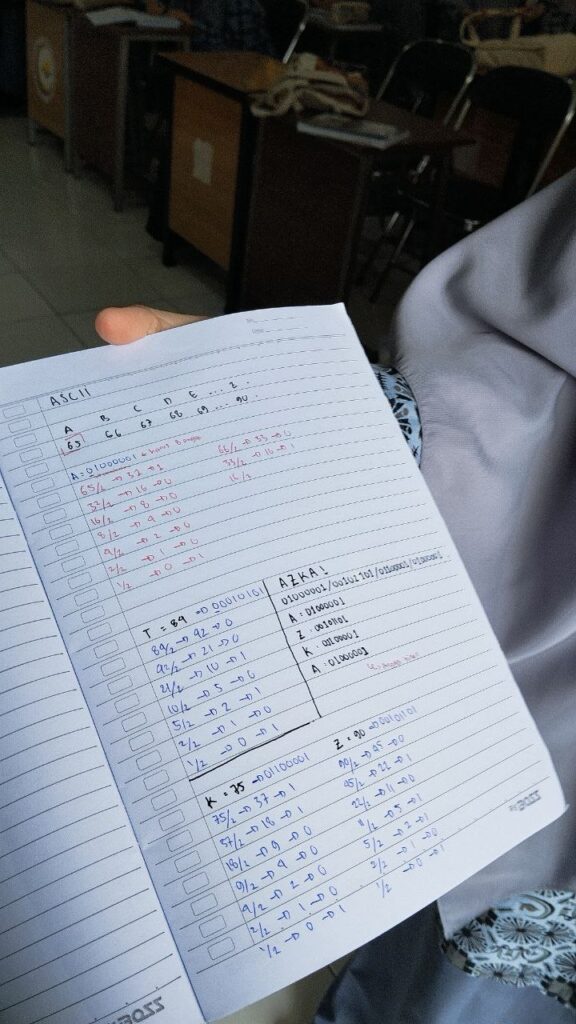 ASCII
A B C D E ... Z.
65 66 67 68 69 ... 90
A = 01000001
65/2 → 32 → 1
32/2 → 16 → 0
16/2 → 8 → 0
8/2 → 4 → 0
4/2 → 2 → 0
2/2 → 1 → 0
1/2 → 0 → 1
66/2 → 33 → 0
33/2 → 16 → 1
16/2
T = 84 → 00010101
84/2 → 42 → 0
42/2 → 21 → 0
21/2 → 10 → 1
10/2 → 5 → 0
5/2 → 2 → 1
2/2 → 1 → 0
1/2 → 0 → 1
AZKA!
A = 01000001
A : 01000001
K = 75
75/2 → 37 → 1
37/2 → 18 → 1
18/2 → 9 → 0
9/2 → 4 → 0
4/2 → 2 → 0
2/2 → 1 → 0
1/2 → 0 → 1
Z = 90 → 00101101
90/2 → 45 → 0
45/2 → 22 → 1
22/2 → 11 → 0
11/2 → 5 → 1
5/2 → 2 → 1
2/2 → 1 → 0
1/2 → 0 → 1